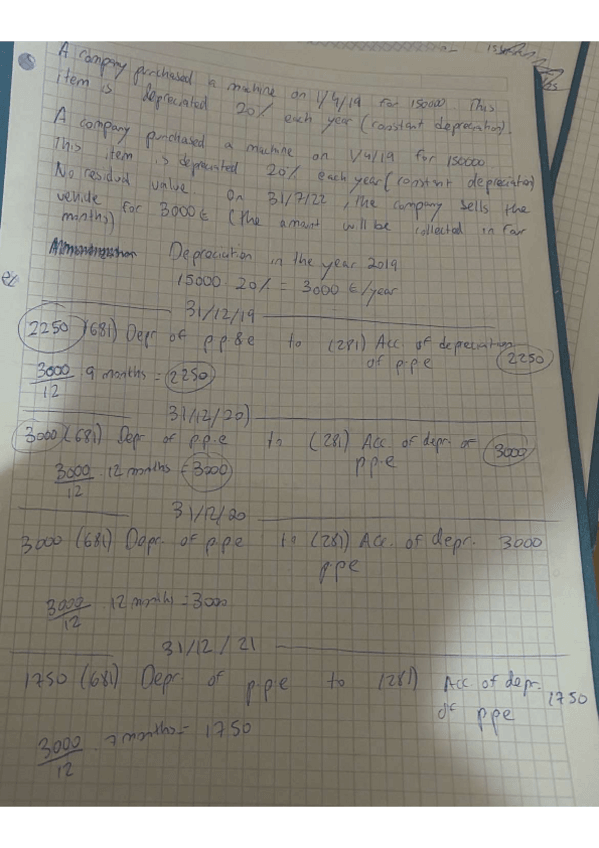 A company purchased a machine on 1/4/19 for 150000 This
item is depreciated 20% each year (constant depreciation).
A company purchased a machine on 1/4/19 for 150000.
This item is depreciated 20% each year (constant depreciation)
No residual value. On 31/7/22, the company sells the
vehicle for 3000€ (the amount will be collected in four
months)
Depreciation in the year 2019
15000 20% = 3000 €/year
31/12/19
2250 (681) Depr of p p & e to (281) Acc of depreciation 2250
of p.p.e
3000/12 . 9 months = 2250
31/12/20)
3000 (681) Depr of p.p.e to (281) Acc of depr. of 3000
p.p.e
3000/12 . 12 months = 3000
31/12/20
3000 (681) Depr. of p.p.e to (281) Acc. of depr. 3000
p.p.e
3000/12 . 12 months = 3000
31/12/21
1750 (681) Depr. of p.p.e to (281) Acc of depr. 1750
of p.p.e
3000/12 . 7 months = 1750